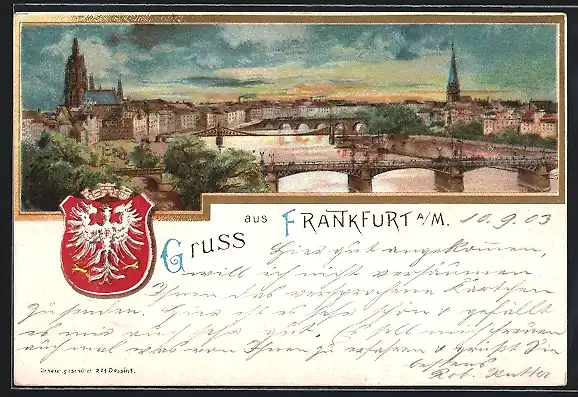 Gruss aus FRANKFURT A/M. 10.9.03
Hier gut angekommen,
will ich nicht versäumen
Ihnen das versprochene Kärtchen
zu senden. Hier ist es sehr schön & gefällt
es mir auch sehr gut. Es soll mich freuen
auch mal was von Ihnen zu erfahren & grüßt Sie
bestens
Rob.
221 Dessint.